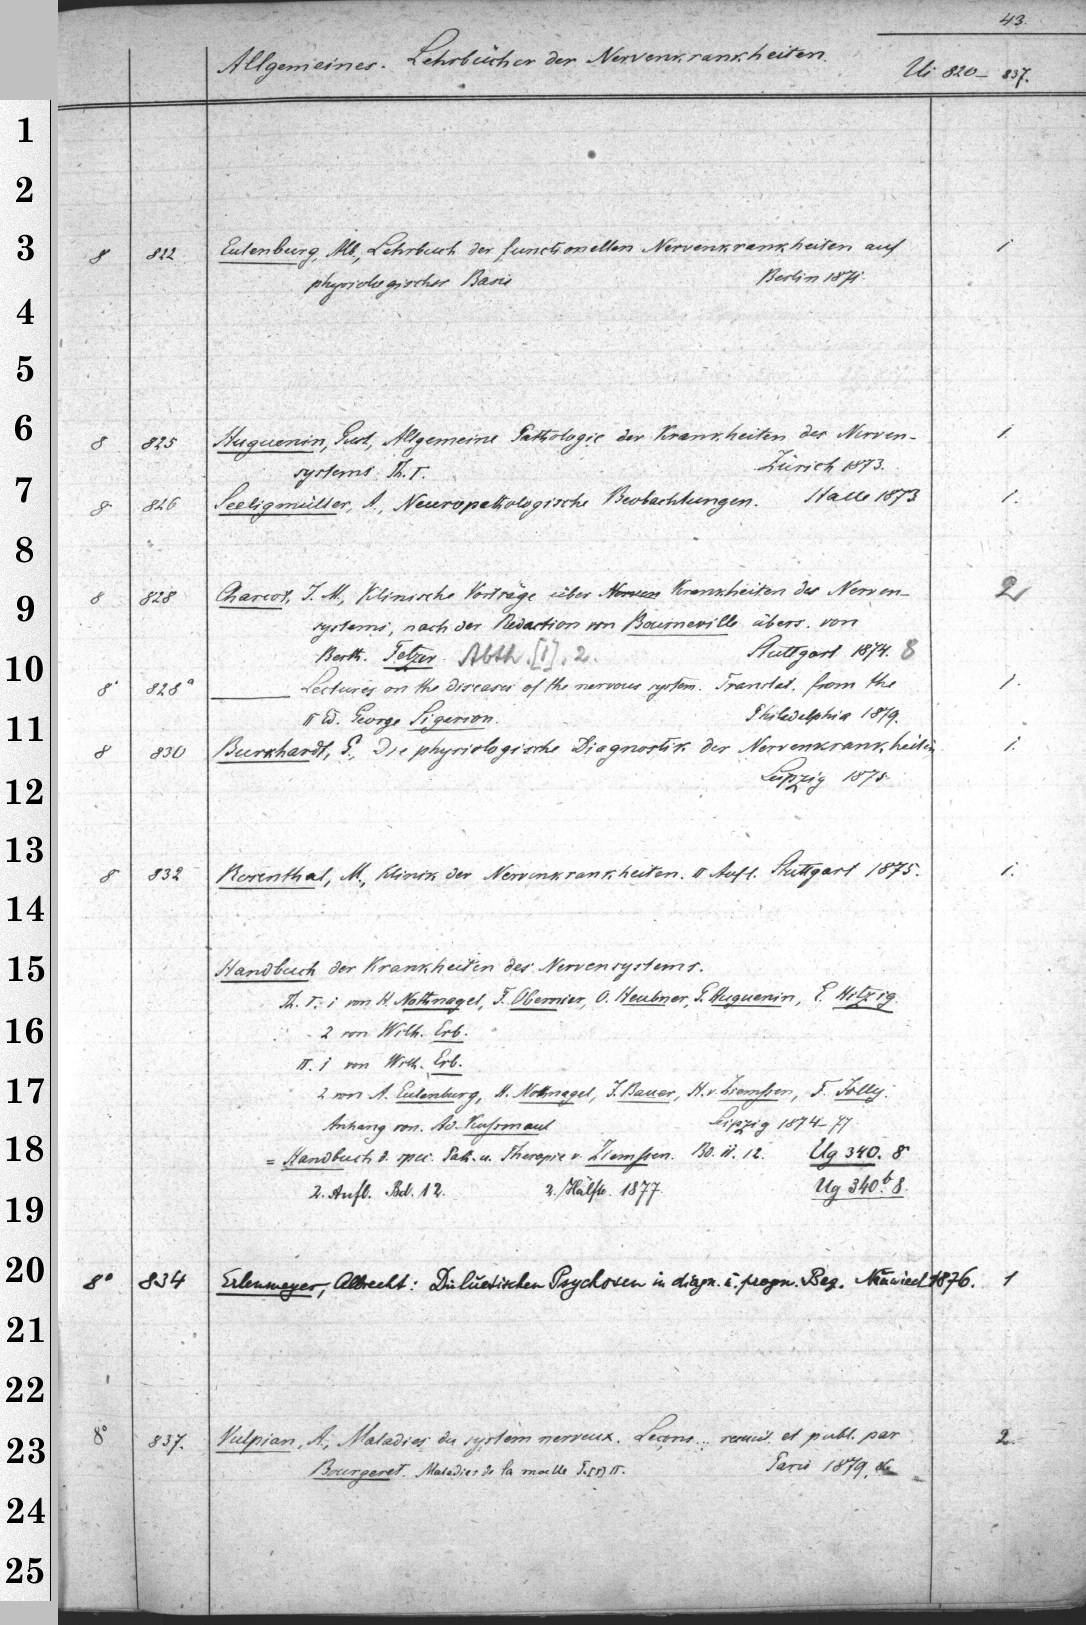 43.
Allgemeines. Lehrbücher der Nervenkrankheiten. Ui 820–837.
1
2
3 8 822 Eulenburg, Alb., Lehrbuch der functionellen Nervenkrankheiten auf 1
physiologischer Basis Berlin 1871.
4
5
6 8 825 Huguenin, Gust., Allgemeine Pathologie der Krankheiten des Nerven- 1.
systems. Th. I. Zürich 1873.
7 8 826 Seeligmüller, A., Neuropathologische Beobachtungen. Halle 1873 1.
8
9 8 828 Charcot, J. M., Klinische Vorträge über Nerven Krankheiten des Nerven- 2
systems, nach der Redaction von Bourneville übers. von
10 Berth. Fetzer. Abth. [1]. 2. Stuttgart 1874. 8
8° 828a ____ Lectures on the diseases of the nervous system. Translat. from the 1.
11 II Ed. George Sigerson. Philadelphia 1879.
8 830 Burkhardt, G., Die physiologische Diagnostik der Nervenkrankheiten 1.
12 Leipzig 1875.
13
8 832 Rosenthal, M., Klinik der Nervenkrankheiten. II Aufl. Stuttgart 1875. 1.
14
15 Handbuch der Krankheiten des Nervensystems.
Th. I. 1 von H. Nothnagel, F. Obernier, O. Heubner, G. Huguenin, E. Hitzig.
16 2 von Wilh. Erb.
II. 1 von Wilh. Erb.
17 2 von A. Eulenburg, H. Nothnagel, J. Bauer, H. v. Ziemssen, F. Jolly.
Anhang von Ad. Kussmaul Leipzig 1874–77
18 = Handbuch d. spec. Path. u. Therapie v. Ziemssen. Bd. 11. 12. Ug 340. 8
19 2. Aufl. Bd. 12. 2. Hälfte. 1877. Ug 340b. 8.
20 8° 834 Erlenmeyer, Albrecht: Die luëtischen Psychosen in diagn. u. progn. Bez. Neuwied 1876. 1
21
22
23 8° 837. Vulpian, A., Maladies du système nerveux. Leçons... recueil. et publ. par 2.
Bourgeret. Maladies de la moelle T. [I] II. Paris 1879.
24
25